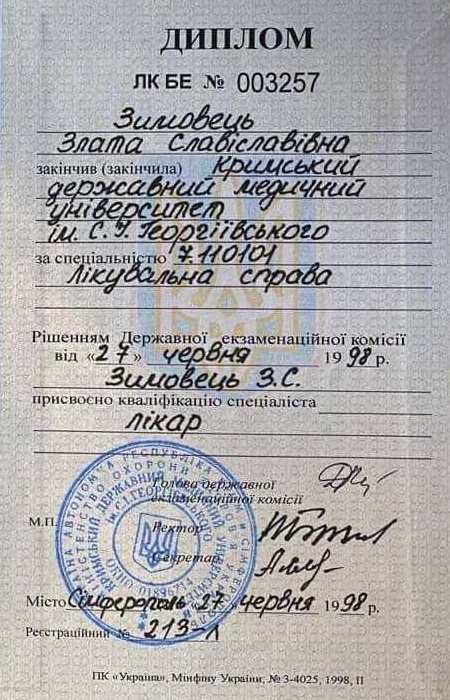 ДИПЛОМ
ЛК БЕ № 003257
Зимовець
Злата Славіславівна
закінчив (закінчила) Кримський
державний медичний
університет
ім. С.І. Георгіївського
за спеціальністю 7.110101
Лікувальна справа
Рішенням Державної екзаменаційної комісії
від «27» червня 1998 р.
Зимовець З.С.
присвоєно кваліфікацію спеціаліста
лікар
Голова державної
екзаменаційної комісії
М.П.
Ректор
Секретар
Місто Сімферополь «27» червня 1998 р.
Реєстраційний № 213-Л
ПК «Україна», Мінфіну України, № 3-4025, 1998, II